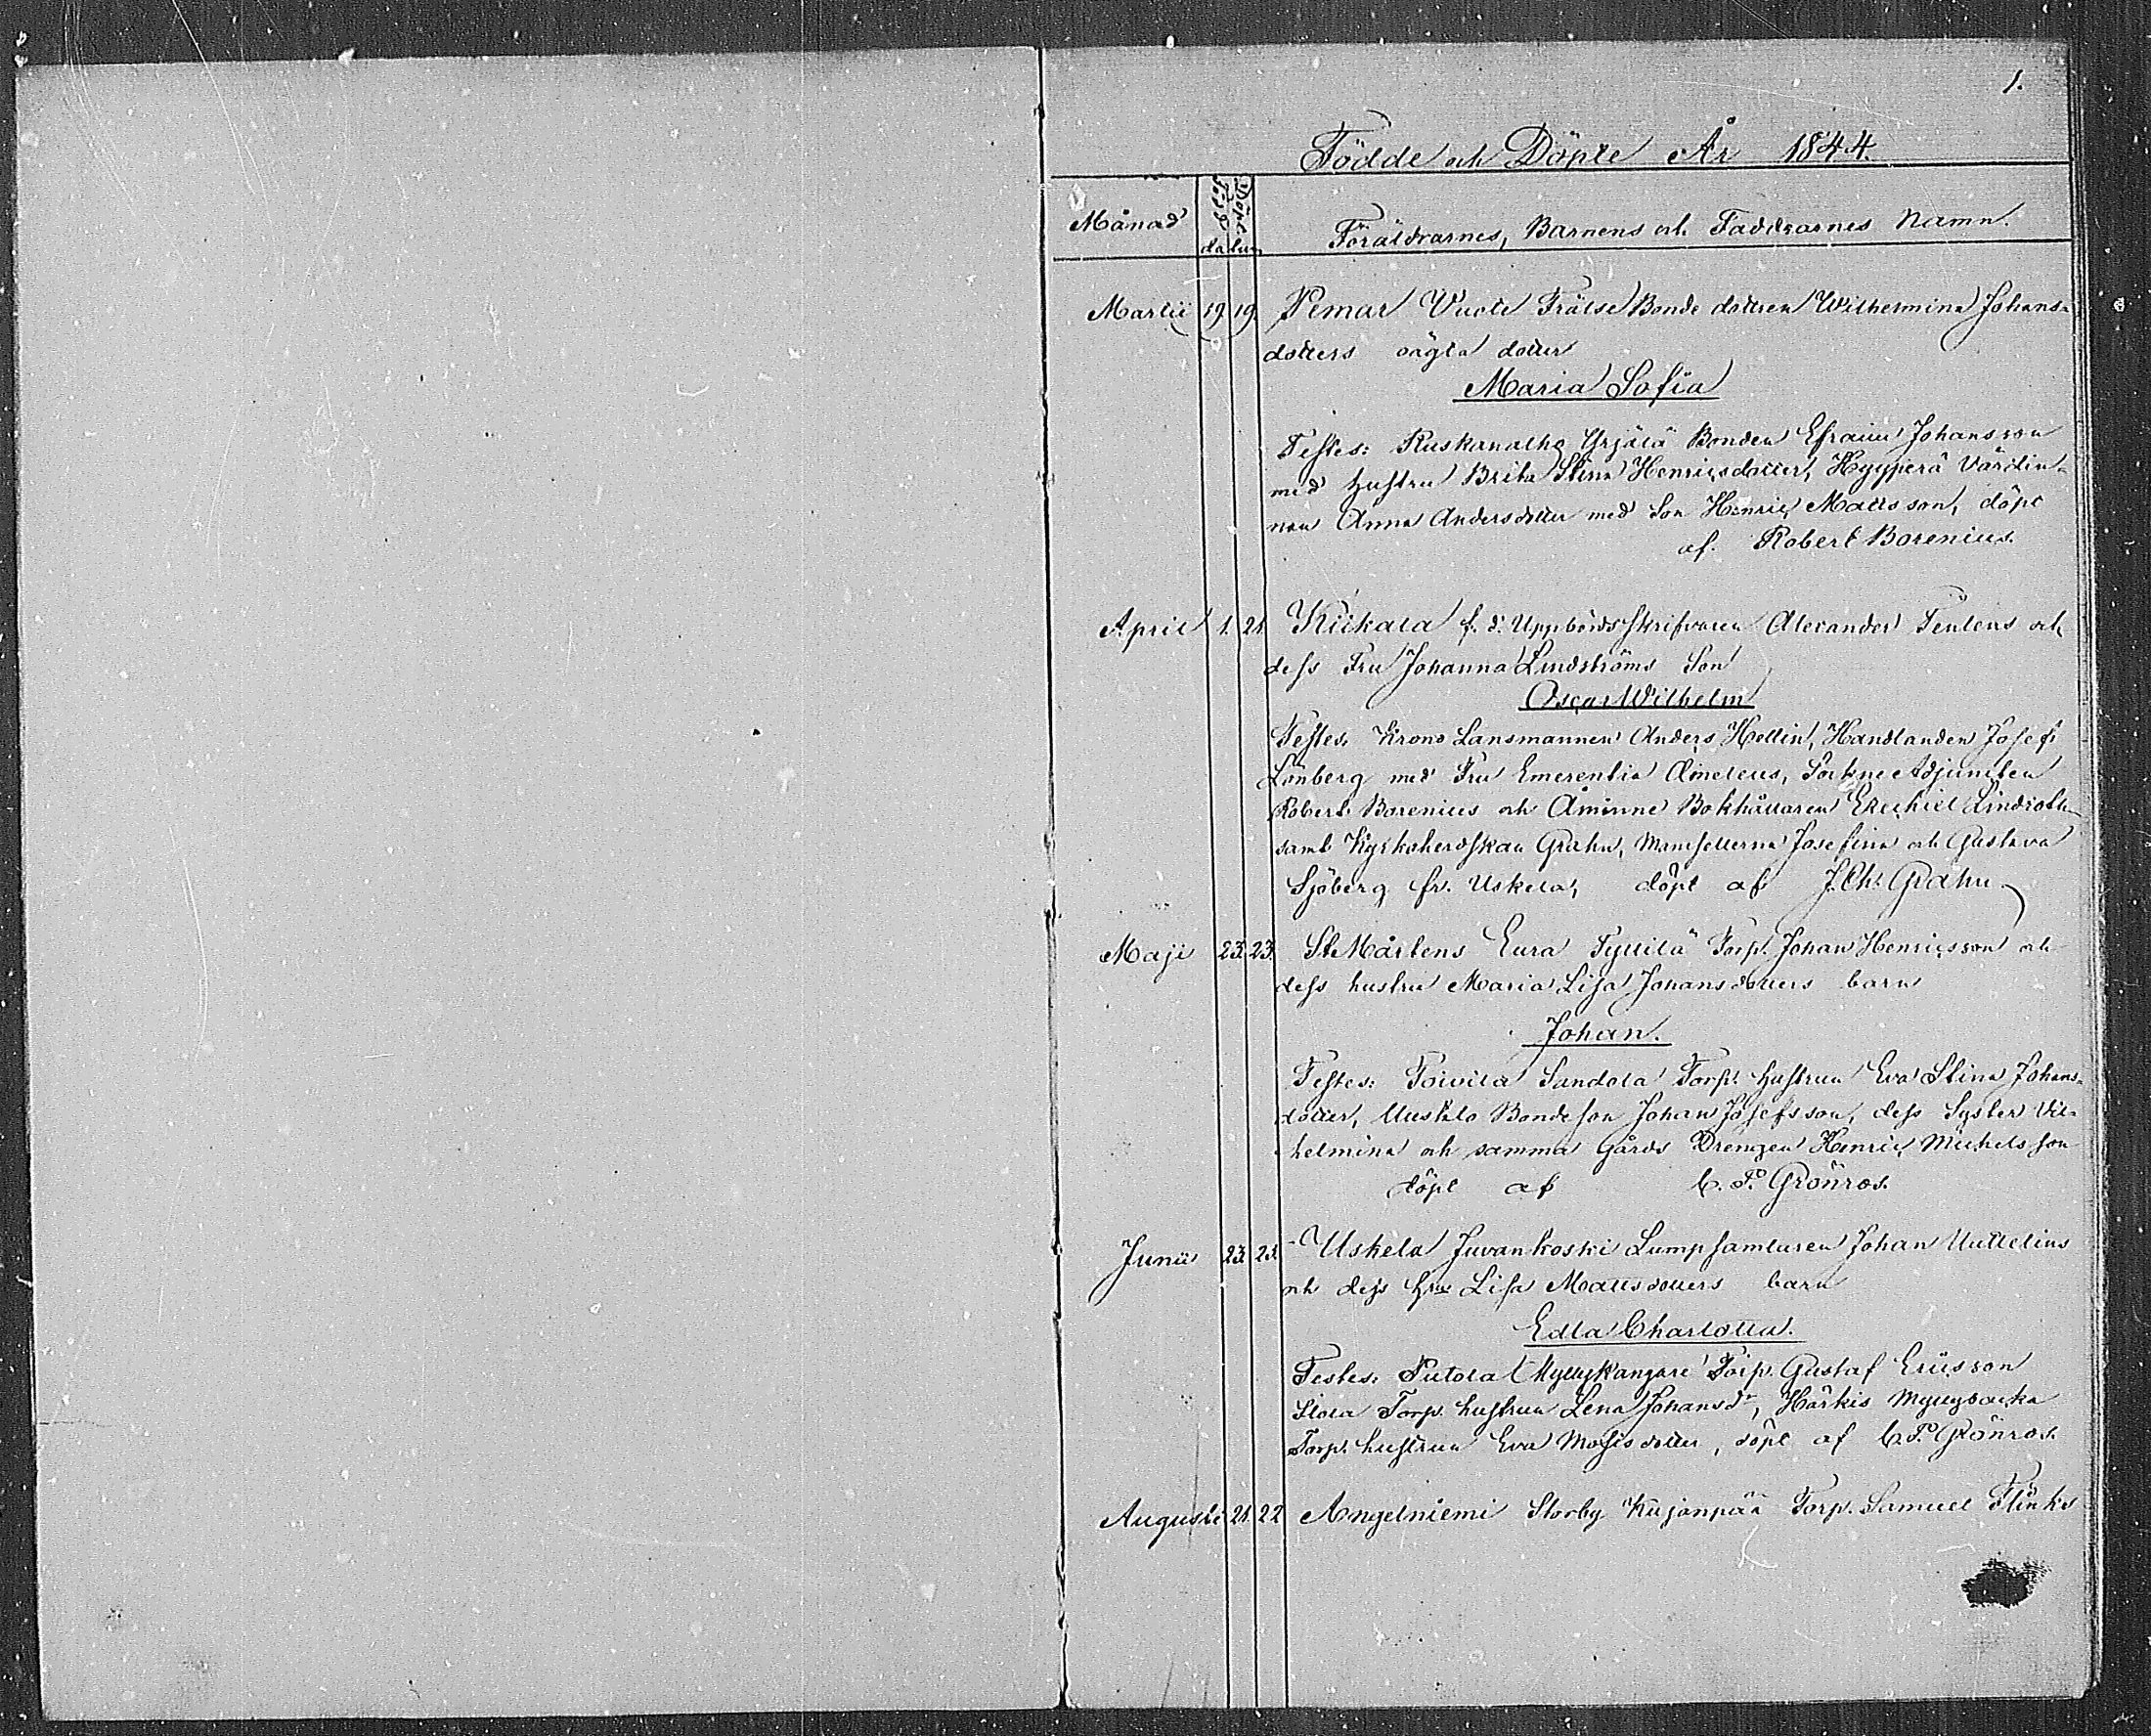 1.
Födde och Döpte År 1844.
Månad Född Döpt datum Föräldrarnes, Barnens och Faddrarnes Namn.
Martii 19 19. Pemar Vuolé Frälse Bonde dottren Wilhelmina Johans-
dotters oägta dotter
Maria Sofia
Testes: Ruskanalho Yrjälä Bonden Efraim Johansson
med hustru Brita Stina Henricsdotter, Hyyperä Värdin-
nan Anna Andersdotter med Son Henric Mattsson, döpt
af. Robert Borenius.
April 1. 21. Kiikala f. d. Uppbördsskrifvaren Alexander Tenlens och
dess Fru Johanna Lindströms Son
Oscar Wilhelm
Testes. Krono Länsmannen Anders Hellin, Handlanden Josef
Lönberg med Fru Emerentia Aimeleus, Sockne Adjuncten
Robert Borenius och Åminne Bokhållaren Ezechiel Lindroth
samt Kyrkoherdskan Grahn, Mamsellerna Josefina och Gustava
Sjöberg fr. Uskela, döpt af J. Ch. Grahn
Maji 23. 23. St Mårtens Eura Tyllilä Torp. Johan Henricsson och
dess hustru Maria Lisa Johansdotters barn
Johan.
Testes: Toivila Sandola Torp. hustrun Eva Stina Johans-
dotter, Uuskylo Bondeson Johan Josefsson, dess Syster Vil-
helmina och samma Gårds Drengen Henric Michelsson
döpt af C. F. Grönros.
Junii 23. 23. Uskela Juvankoski Lumpsamlaren Johan Uuttelius
och dess hu Lisa Mattsdotters barn
Edla Charlotta.
Testes. Putola Myllykangare Torp. Gustaf Ericsson
Silola Torp. hustrun Lena Johansdr, Härkis Myllybacka
Torp. hustrun Eva Mosisdotter, döpt af C. F. Grönros.
Augusti 21. 22 Angelniemi Storby Kujanpää Torp. Samuel Flinks